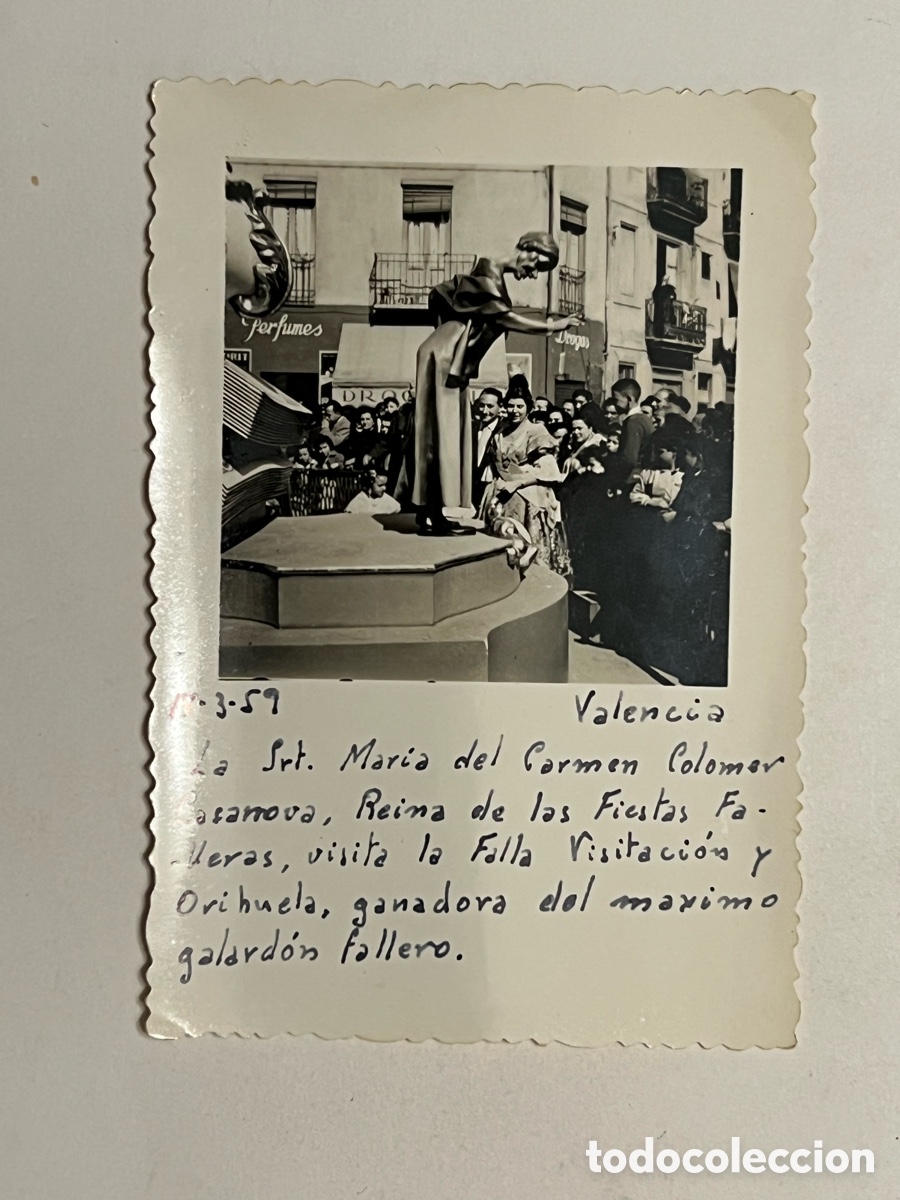 Perfumes
Drogas
DROG
3-59 Valencia
La Srt. María del Carmen Colomer
Casanova, Reina de las Fiestas Fa-
lleras, visita la Falla Visitación y
Orihuela, ganadora del maximo
galardón fallero.
todocoleccion